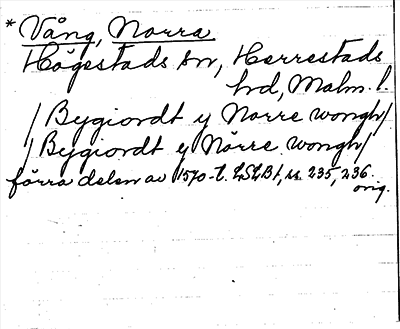 * Vång, Norra
Högestads sn, Herrestads
hd, Malm. l.
/ Bygiordt y Norre wongh /
/ Bygiordt y Nörre wongh /
förra delen av 1570-t. LSLB 1, s. 235, 236.
orig.